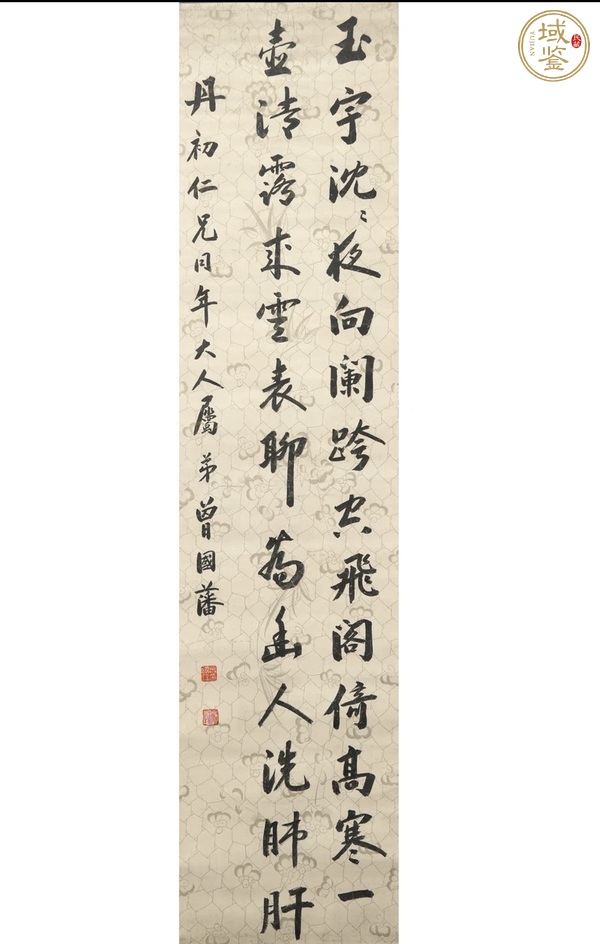 玉宇沈〻夜向阑跨空飛阁倚高寒一
壺清露来雲表聊為幽人洗肺肝
丹初仁兄同年大人屬 弟曾國藩
域鉴
YUJIAN